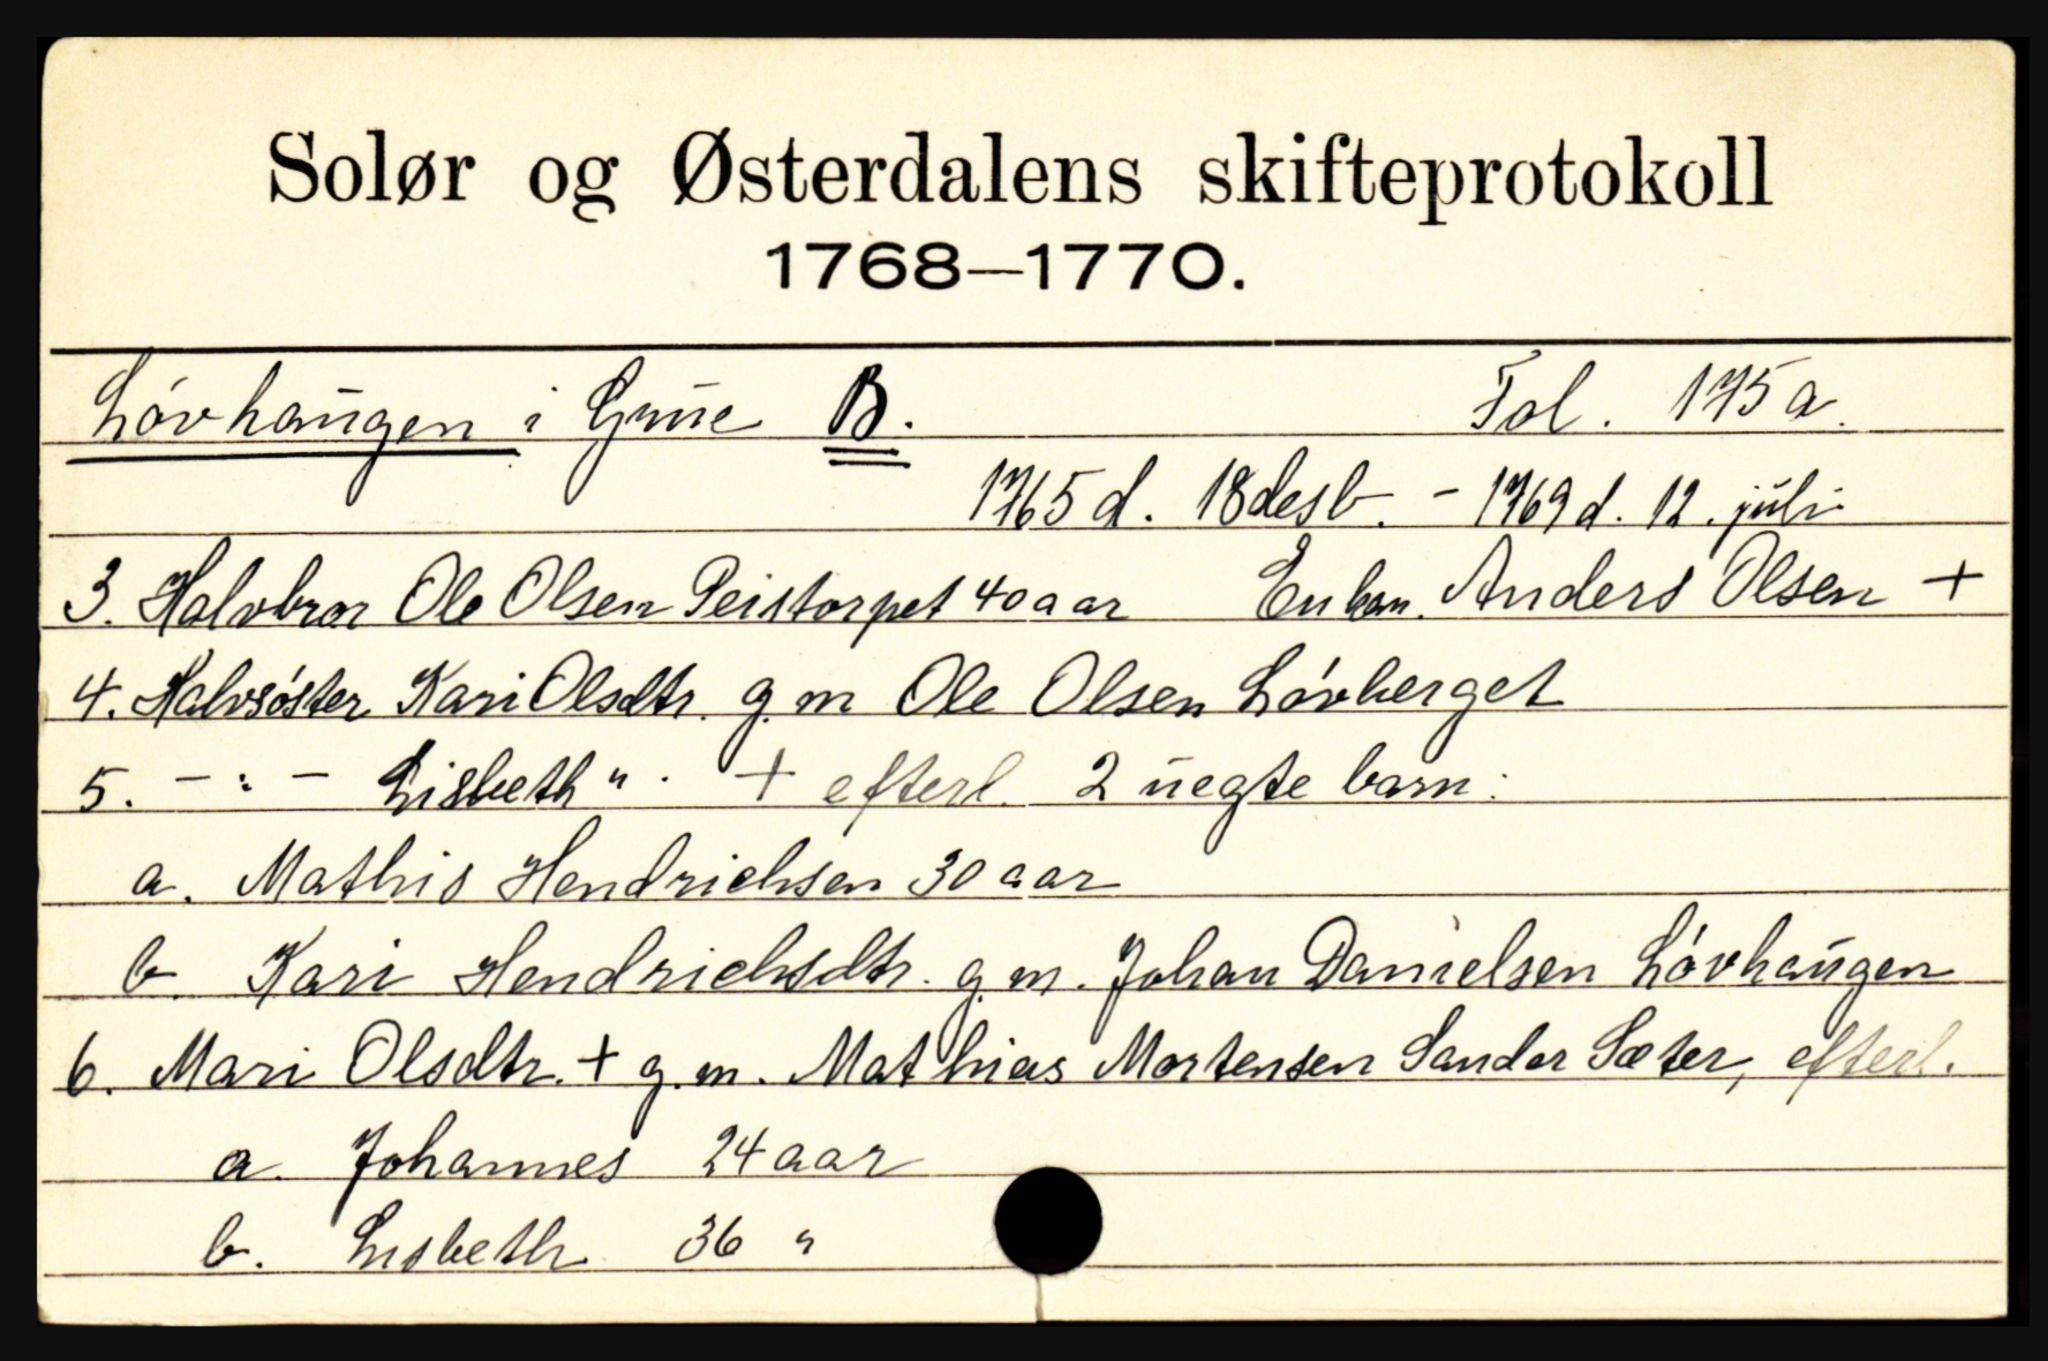 Solør og Østerdalens skifteprotokoll
1768—1770.
Lövhaugen i Grue B. Fol. 175 a.
1765 d. 18 desb. - 1769 d. 12. juli
3. Halvbror Ole Olsen Peistorpet 40 aar Enkem. Anders Olsen +
4. Halvsöster Kari Olsdtr. g. m Ole Olsen Lövberget
5. - : - Lisbeth " . + efterl. 2 uegte barn:
a. Mathis Hendrichsen 30 aar
b. Kari Hendrichsdtr. g. m. Johan Danielsen Lövhaugen
6. Mari Olsdtr. + g. m. Mathias Mortensen Sander Sæter, efterl.
a. Johannes 24 aar
b. Lisbeth 36 "